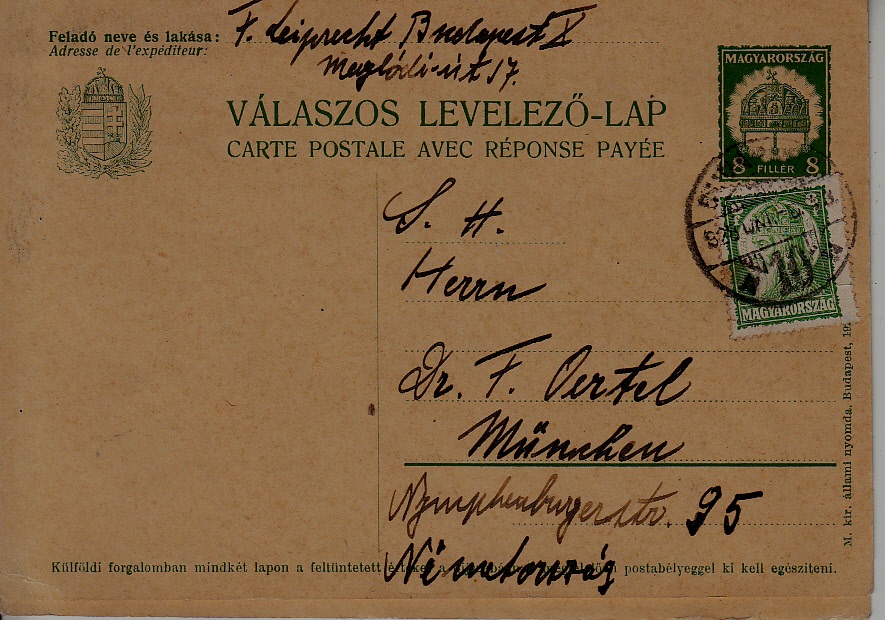 Feladó neve és lakása: F. Leiprecht Budapest X
Adresse de l'expéditeur: Maglódi-út 17.
VÁLASZOS LEVELEZŐ-LAP
CARTE POSTALE AVEC RÉPONSE PAYÉE
MAGYARORSZÁG
8 FILLÉR 8
MAGYARORSZÁG
S. H.
Herrn
Dr. F. Oertel
München
Nymphenburgerstr. 95
Németország
Külföldi forgalomban mindkét lapon a feltüntetett értéket a postabélyeggel ki kell egészíteni.
M. kir. állami nyomda. Budapest, 19